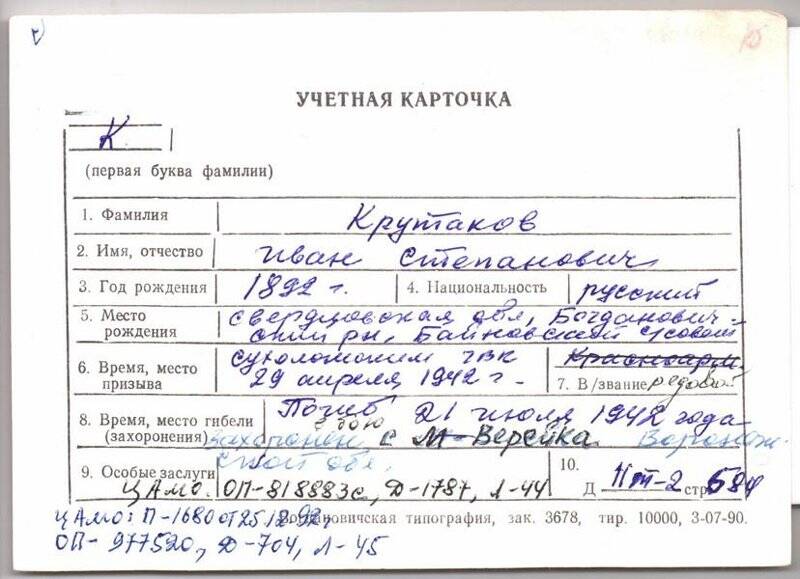 15
УЧЕТНАЯ КАРТОЧКА
К
(первая буква фамилии)
1. Фамилия Крутаков
2. Имя, отчество Иван Степанович
3. Год рождения 1892 г. 4. Национальность русский
5. Место рождения свердловская обл, Богданович-
ский рн, Байновский с/совет
6. Время, место призыва сухоложским ГВК
29 апреля 1942 г. Красноарм.
7. В/звание рядовой
8. Время, место гибели (захоронения) Погиб в бою 21 июля 1942 года
захоронен с М-Верейка Воронеж-
ской обл.
9. Особые заслуги
ЦАМО. ОП-818883с, Д-1787, Л-44
10.
Д IIт-2 стр 584
ЦАМО: П-1680 от 25.12.92г
Богдановичская типография, зак. 3678, тир. 10000, 3-07-90.
ОП-977520, Д-704, Л-45